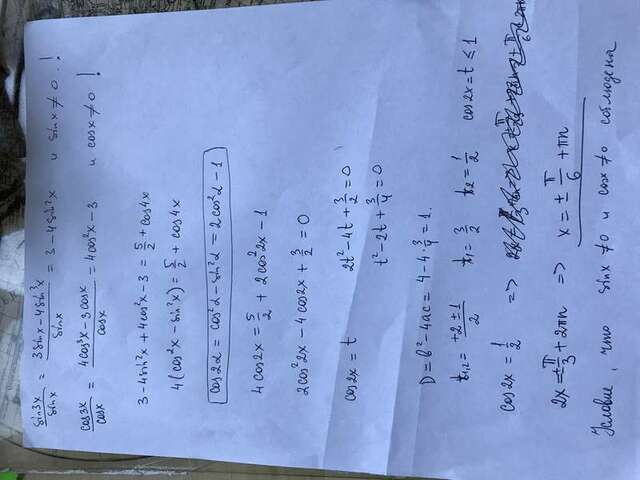 sin3x/sinx = 3sinx-4sin³x/sinx = 3-4sin²x и sinx≠0.!
cos3x/cosx = 4cos³x-3cosx/cosx = 4cos²x-3 и cosx≠0!
3-4sin²x+4cos²x-3=5/2+cos4x
4(cos²x-sin²x)=5/2+cos4x
cos2α=cos²α-sin²α=2cos²α-1
4cos2x=5/2+2cos²2x-1
2cos²2x-4cos2x+3/2=0
cos2x=t 2t²-4t+3/2=0
t²-2t+3/4=0
D=b²-4ac=4-4·3/4=1.
t₁,₂=+2±1/2 t₁=3/2 t₂=1/2 cos2x=t≤1
cos2x=1/2 =>
2x=±π/3+2πn => x=±π/6+πn
Условие, что sinx≠0 и cosx≠0 соблюдена